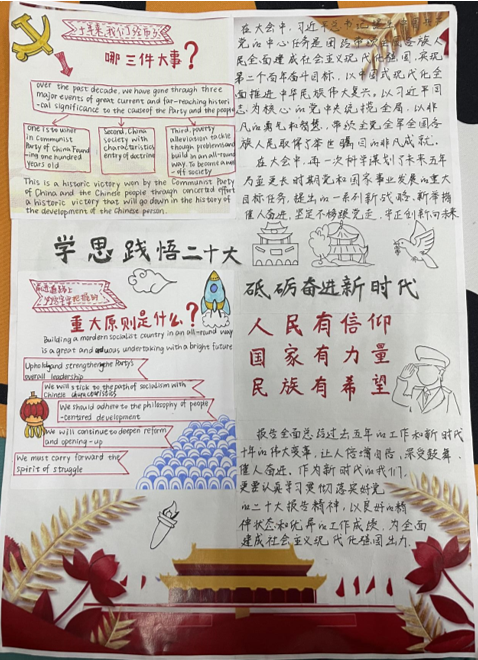 十年来,我们经历了
哪三件大事?
over the past decade, we have gone through three
major events of great current and far-reaching histori
-cal significance to the cause of the Party and the people
one is to usher
in Communist
party of China Found
-ing one hundred
years old
Second, China
society with
characteristics
entry of doctrine
Third, poverty
alleviation to tackle
though problems and
build in an all-round
way. To become a well
-off society
This is a historic victory won by the Communist Party
of China and the Chinese people through concerted effort
a historic victory that will go down in the history of
the development of the Chinese person.
在大会中,习近平总书记
党的中心任务是团结带领全国各族人
民全面建成社会主义现代化强国,实现
第二个百年奋斗目标,以中国式现代化全
面推进中华民族伟大复兴。以习近平同
志为核心的党中央统揽全局,以非
凡的勇气和智慧,带领全党全军全国各
族人民取得了举世瞩目的非凡成就。
在大会中,再一次科学谋划了未来五年
乃至更长时期党和国家事业发展的重大
目标任务,提出的一系列新战略,新举措
催人奋进,坚定不移跟党走,守正创新向未来
学思践悟二十大
砥砺奋进新时代
重大原则是什么?
Building a mordern socialist country in an all-round way
is a great and arduous undertaking with a bright future
Uphold and strengthen the Party's
overall leadership
We will stick to the path of socialism with
Chinese characteristics
We should adhere to the philosophy of people
-centered development
We will continue to deepen reform
and opening-up
We must carry forward the
spirit of struggle
人民有信仰
国家有力量
民族有希望
报告全面总结过去五年的工作和新时代
十年的伟大变革,让人倍增自信,深受鼓舞,
催人奋进,作为新时代的我们,
更要认真学习贯彻落实好党
的二十大报告精神,以良好的精
神状态和优异的工作成绩,为全面
建成社会主义现代化强国出力.